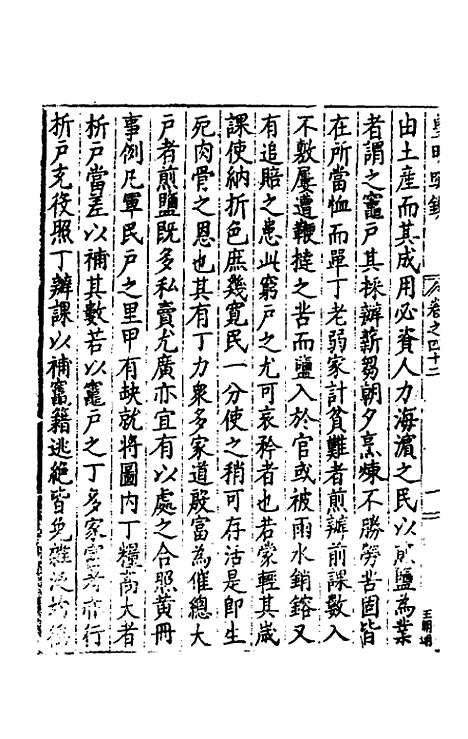 皇明實錄 卷之四十二 一
由土産而其成用必資人力海濱之民以煎鹽為業
者謂之竈戶其採辦薪芻朝夕烹煉不勝勞苦固皆
在所當恤而單丁老弱家計貧難者煎辦前課數入
不敷屢遭鞭撻之苦而鹽入於官或被雨水銷鎔又
有追賠之患此窮戶之尤可哀矜者也若蒙輕其歲
課使納折色庶幾寬民一分使之稍可存活是即生
死肉骨之恩也其有丁力衆多家道殷富為催總大
戶者煎鹽既多私賣尤廣亦宜有以處之合照黃冊
事例凡軍民戶之里甲有缺就將圖內丁糧高大者
折戶當差以補其數若以竈戶之丁多家富者亦行
折戶充役照丁辦課以補竈籍逃絕皆免雜泛